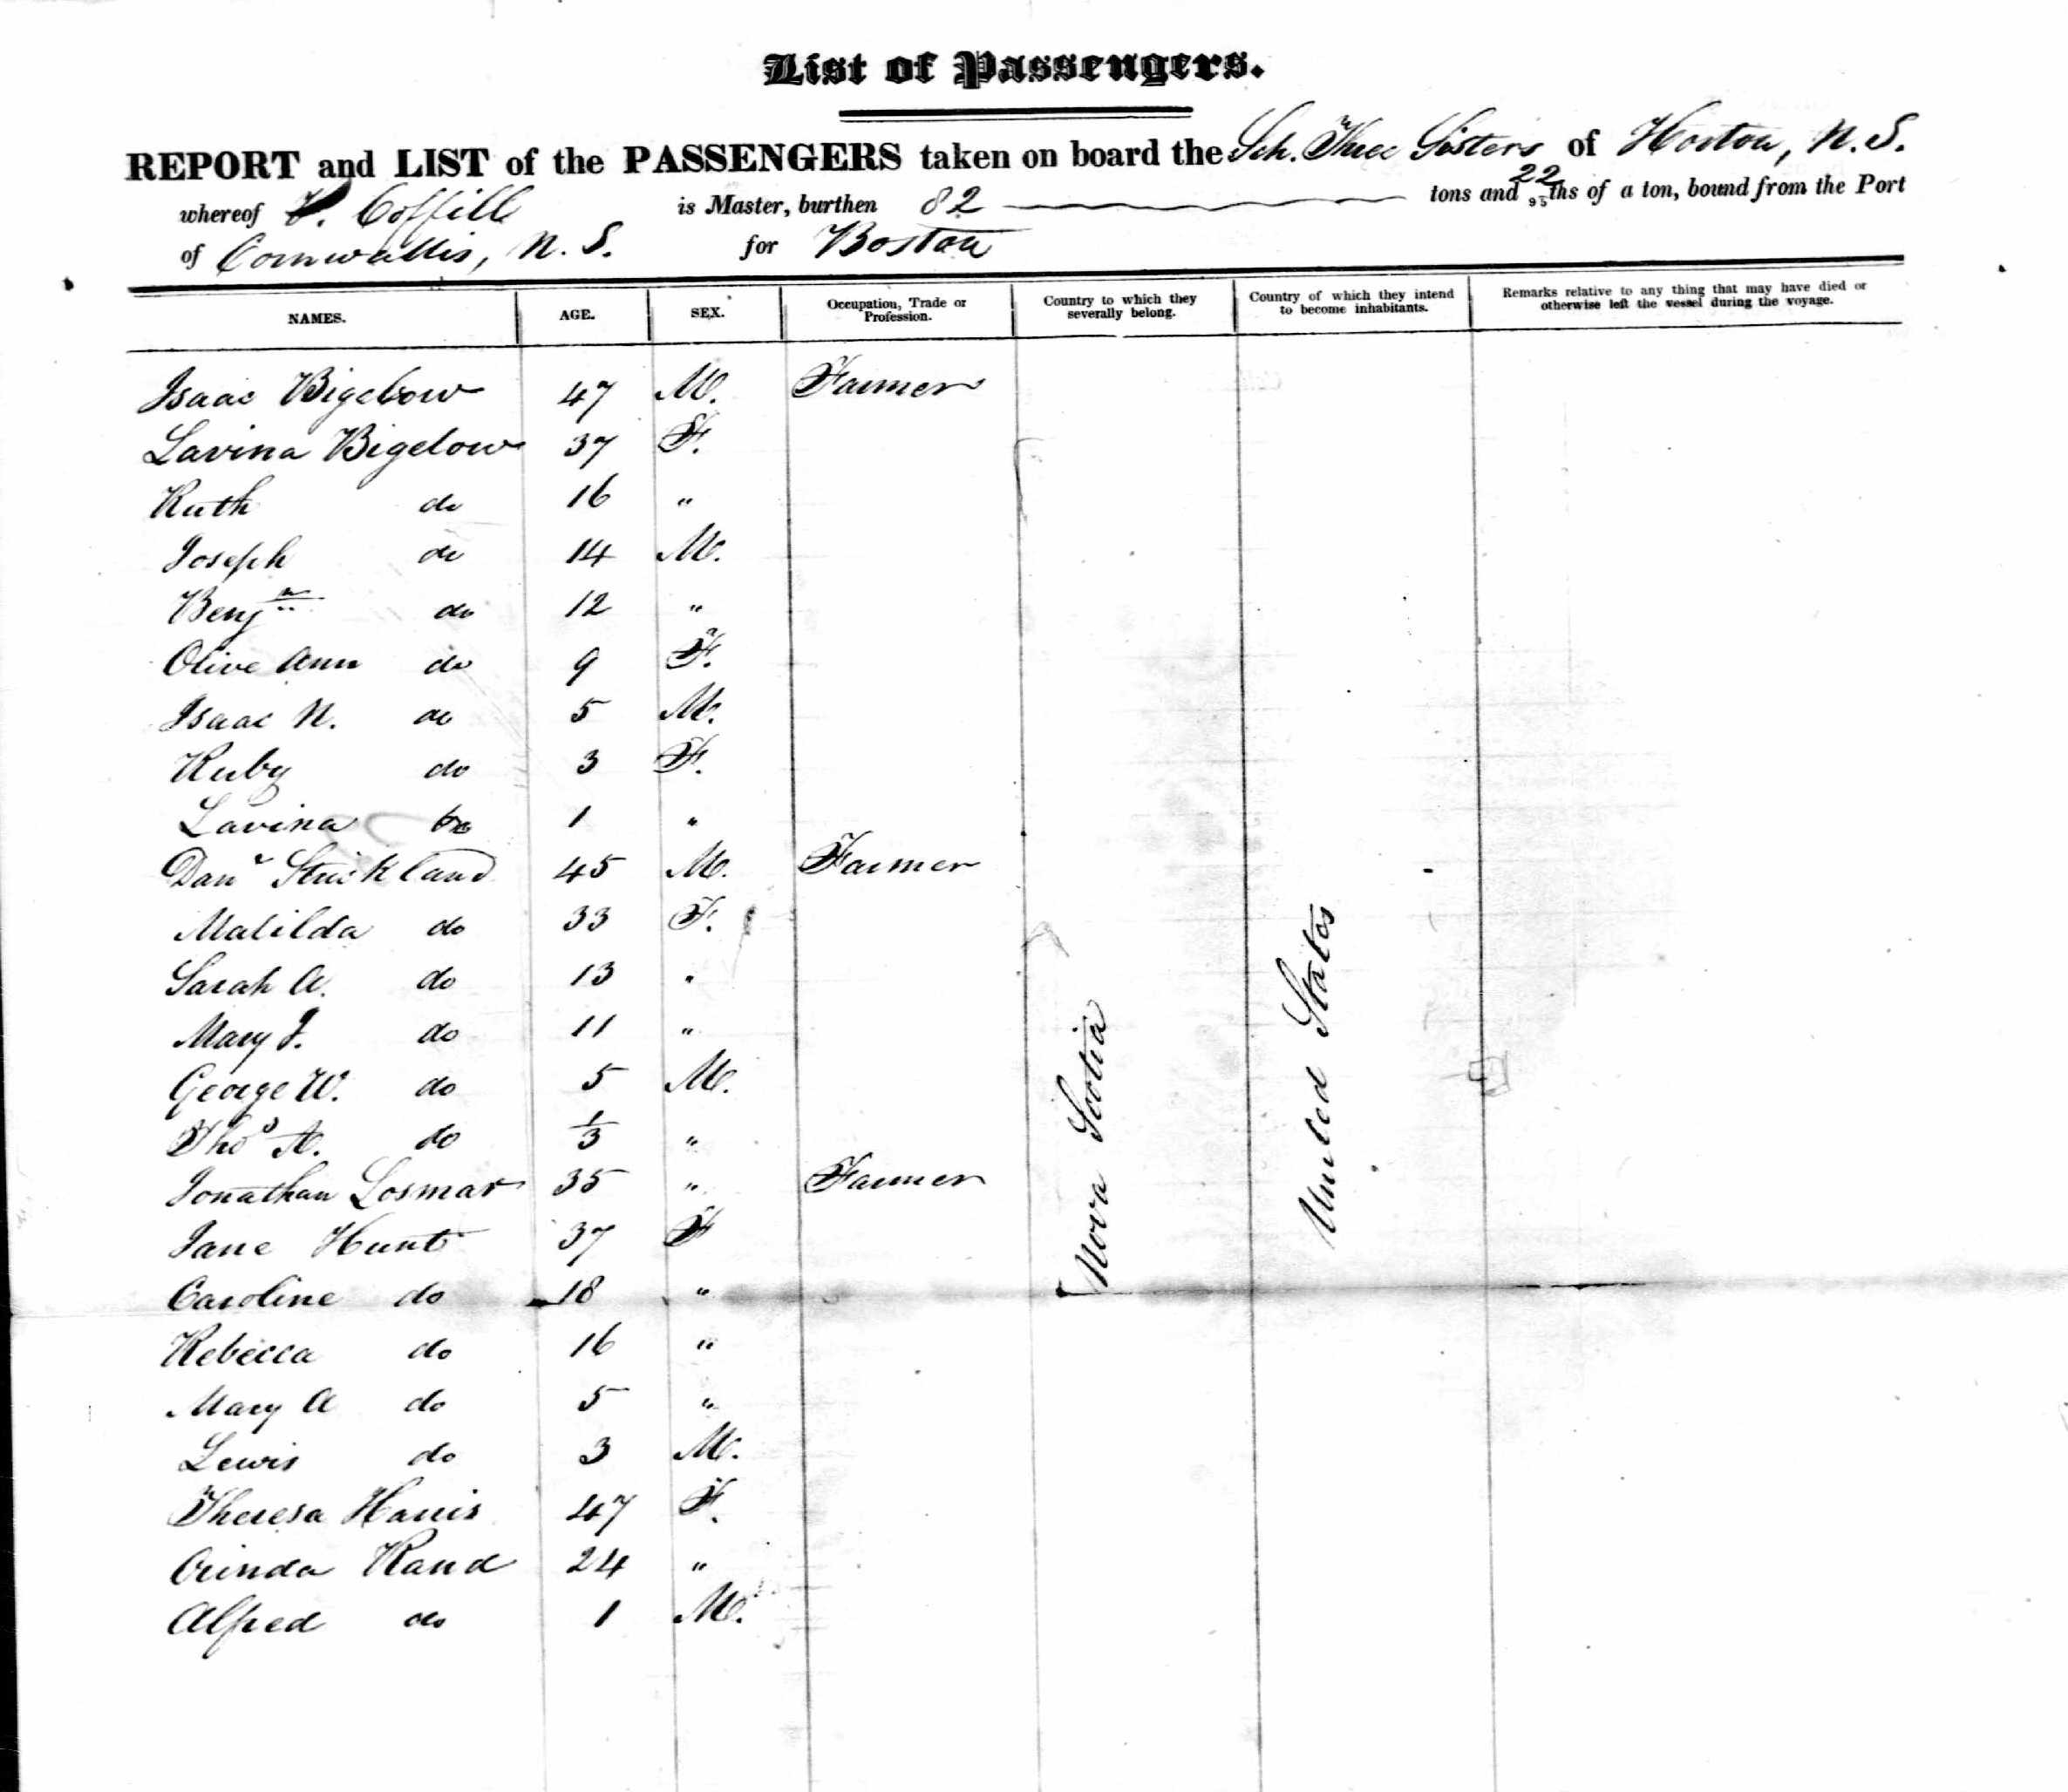 List of Passengers.
REPORT and LIST of the PASSENGERS taken on board the Sch. Three Sisters of Horton, N. S.
whereof Coffill is Master, burthen 82 tons and 22/95ths of a ton, bound from the Port
of Cornwallis, N. S. for Boston
NAMES. AGE. SEX. Occupation, Trade or Profession. Country to which they severally belong. Country of which they intend to become inhabitants. Remarks relative to any thing that may have died or otherwise left the vessel during the voyage.
Isaac Bigelow 47 M. Farmer
Lavina Bigelow 37 F.
Ruth do 16 "
Joseph do 14 M.
Benjn do 12 "
Olive Ann do 9 F.
Isaac N. do 5 M.
Ruby do 3 F.
Lavina do 1 "
Danl Strickland 45 M. Farmer
Matilda do 33 F.
Sarah A. do 13 "
Mary J. do 11 "
George W. do 5 M.
Thos A. do 1/3 "
Jonathan Losmar 35 " Farmer
Jane Hunt 37 F
Caroline do 18 "
Rebecca do 16 "
Mary A do 5 "
Lewis do 3 M.
Theresa Harris 47 F.
Orinda Rand 24 "
Alfred do 1 M.
Nova Scotia
United States